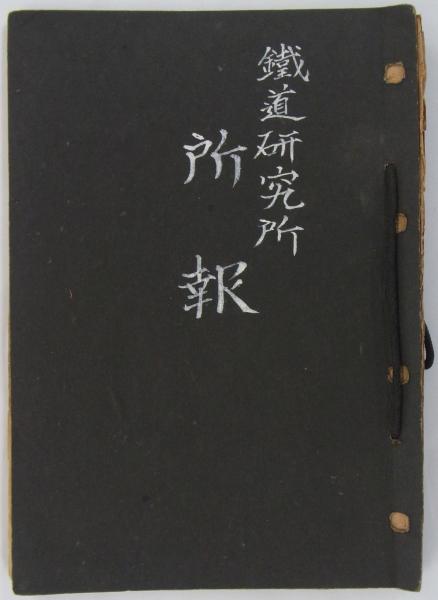 鐵道研究所
所報